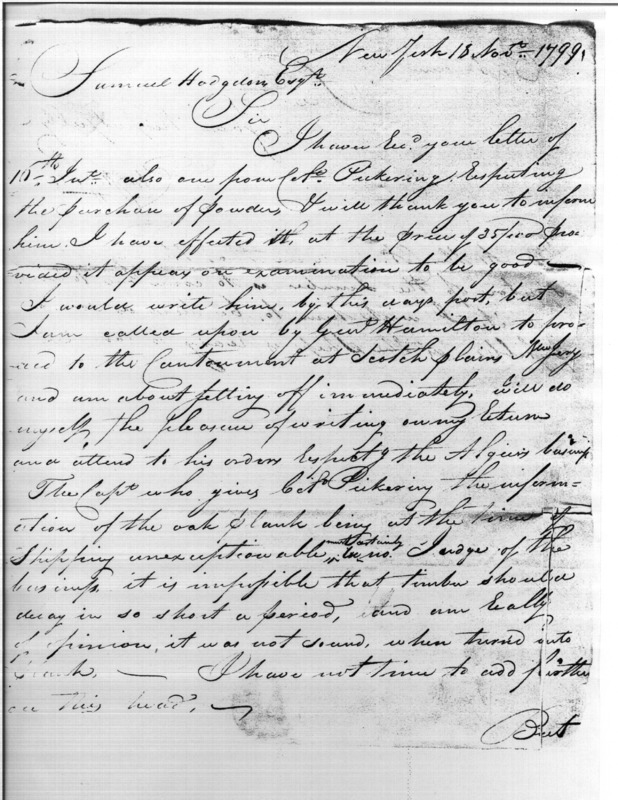 New York 18 Novr. 1799.
Samuel Hodgdon Esqr.
Sir
I have Recd. your letter of
15th. Inst. also one from Colo. Pickering, Respecting
the purchase of Powder, I will thank you to inform
him I have effected it, at the price of 35 pro-
vided it appear on examination to be good
I would write him, by this days post, but
I am called upon by Genl. Hamilton to pro-
ceed to the Cantonment at Scotch plains New Jersy
and am about setting off immediately, will do
myself the pleasure of writing on my Return
and attend to his orders Respectg the Algiers business
The Capt. who gives Colo. Pickering the inform-
ation of the oak plank being at the time of
Shipping unexceptionable, must certainly be no Judge of the
business, it is impossible that timber should
decay in so short a period, and am Really
of opinion, it was not sound, when turn'd into
Plank. — I have not time to add further
on this head,
But